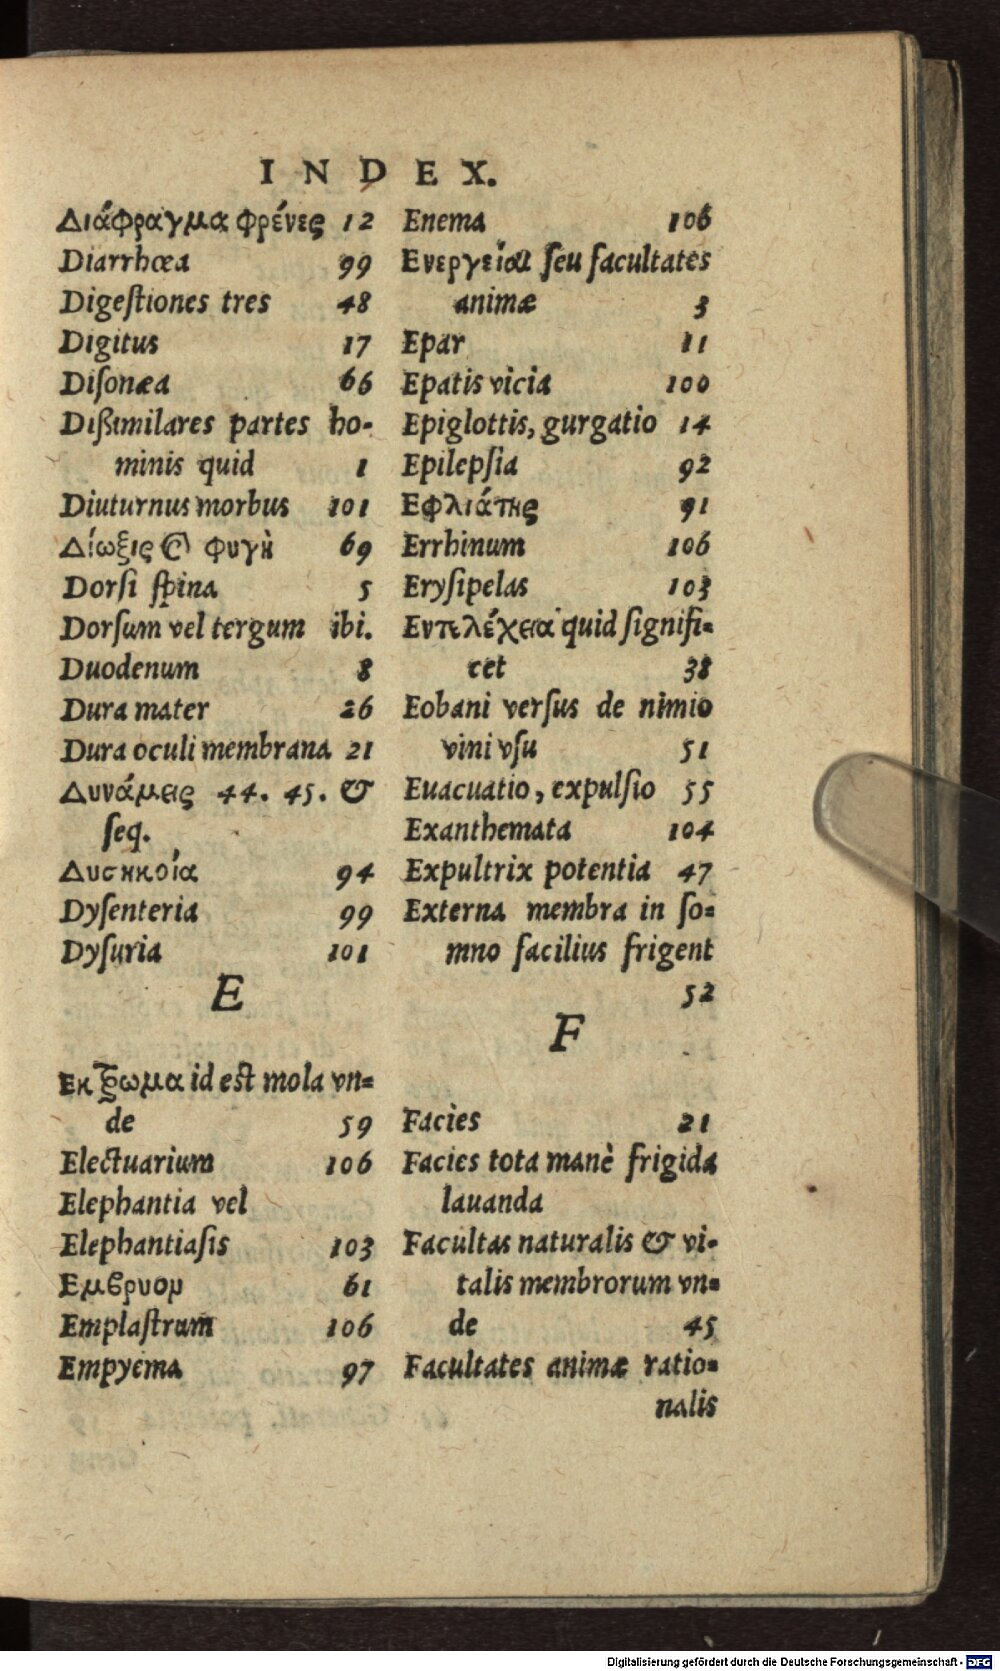 INDEX.
Διάφραγμα φρένες 12
Diarrhœa 99
Digeſtiones tres 48
Digitus 17
Diſonæa 66
Dißimilares partes ho-
minis quid 1
Diuturnus morbus 101
Δίωξις & φυγὴ 69
Dorſi ſpina 5
Dorſum vel tergum ibi.
Duodenum 8
Dura mater 26
Dura oculi membrana 21
Δυνάμεις 44. 45. &
ſeq.
Δυσηκοία 94
Dyſenteria 99
Dyſuria 101
E
id est mola vn=
de 59
Electuarium 106
Elephantia vel
Elephantiaſis 103
Εμβρυον 61
Emplaſtrum 106
Empyema 97
Enema 106
Ενεργεῖαι ſeu facultates
animæ 3
Epar 11
Epatis vicia 100
Epiglottis, gurgatio 14
Epilepſia 92
Εφλιάτης 91
Errhinum 106
Eryſipelas 103
Εντελέχεια quid ſignifi=
cet 38
Eobani verſus de nimio
vini vſu 51
Euacuatio, expulſio 55
Exanthemata 104
Expultrix potentia 47
Externa membra in ſo=
mno facilius frigent
52
F
Facies 21
Facies tota manè frigida
lauanda
Facultas naturalis & vi-
talis membrorum vn=
de 45
Facultates animæ ratio=
nalis
Digitalisierung gefördert durch die Deutsche Forschungsgemeinschaft - DFG